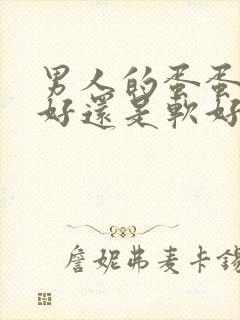 男人的蛋蛋
好還是軟好
詹妮弗麦卡錫